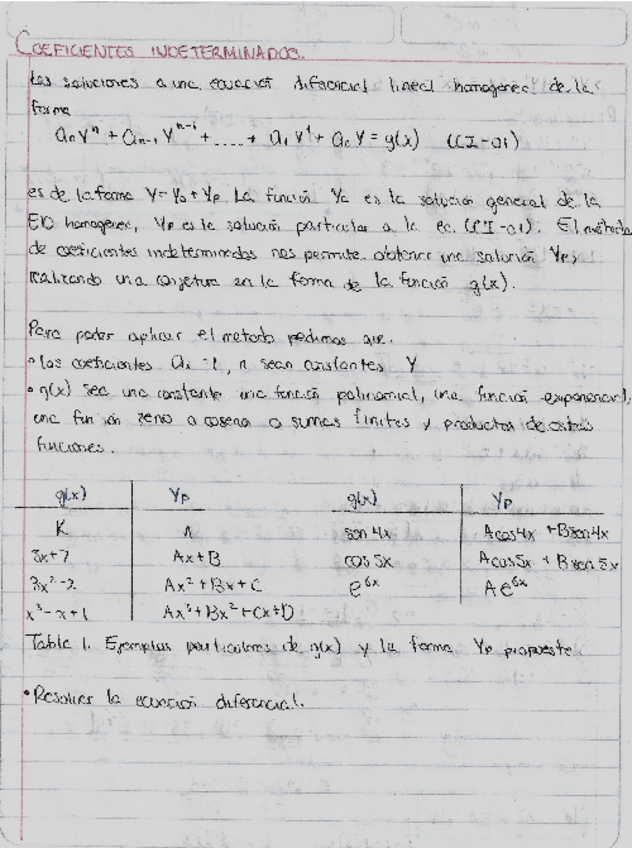 COEFICIENTES INDETERMINADOS.
Las soluciones a una ecuación diferencial lineal homogenea de la
forma
aₙyⁿ + aₙ₋₁ yⁿ⁻¹ + ..... + a₁ y¹ + a₀ y = g(x) (CI-01)
es de la forma y = y₀ + yp. La función yc es la solución general de la
ED homogenea, yp es la solución particular a la ec. (CI-01). El método
de coeficientes indeterminados nos permite obtener una solución yp,
realizando una conjetura en la forma de la función g(x).
Para poder aplicar el metodo pedimos que.
• los coeficientes ai = 1, n sean constantes y
• g(x) sea una constante una función polinomial, una función exponencial,
una función seno o coseno o sumas finitas y productos de estas
funciones.
g(x) yp g(x) yp
K A sen 4x Acos4x + Bsen4x
5x+7 Ax+B cos 5x Acos5x + Bsen 5x
3x²-2 Ax²+Bx+C e⁶ˣ Ae⁶ˣ
x³-x+1 Ax³+Bx²+Cx+D
Tabla 1. Ejemplos particulares de g(x) y la forma yp propuesta.
• Resolver la ecuación diferencial.